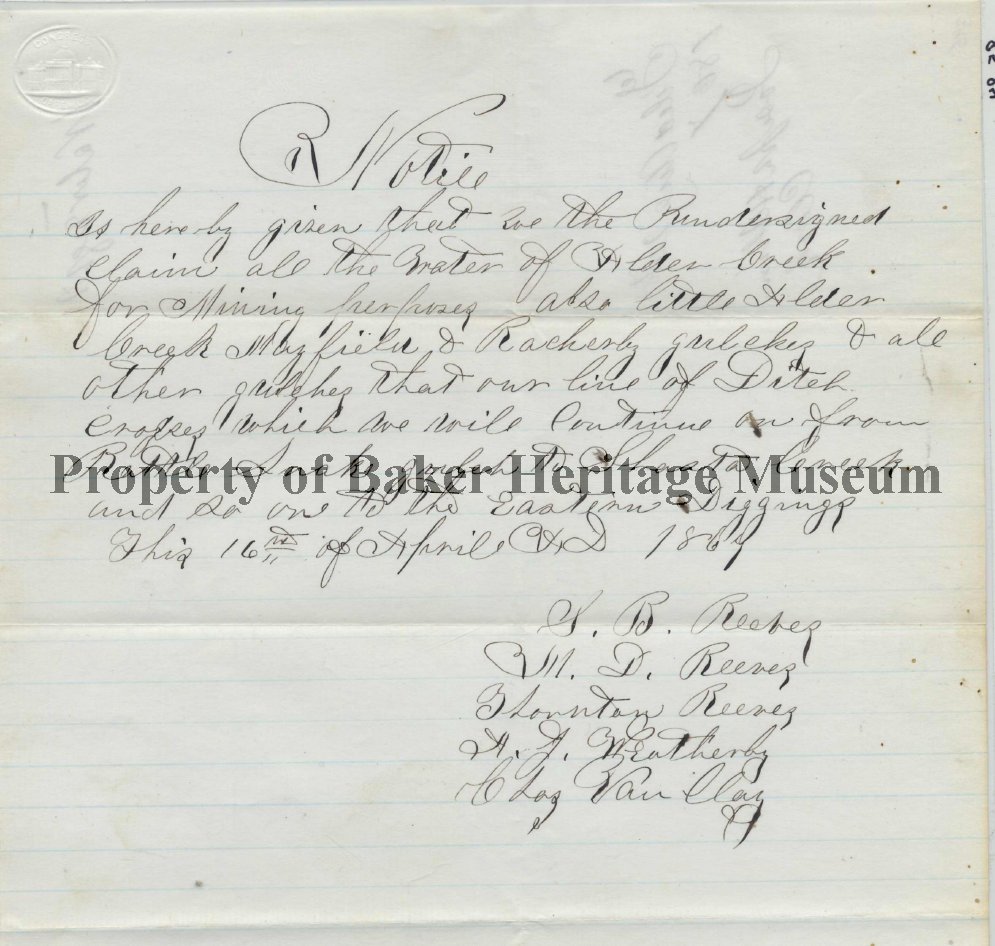 CONGRESS
Notice
Is hereby given that we the Undersigned
Claim all the Water of Alder Creek
for Mining perposes also little Alder
Creek Mayfield & Rackerby gulches & all
other gulches that our line of Ditch
Crosses which we will Continue on from
Rattle Snake gulch to Shasta Creek
Property of Baker Heritage Museum
and so on to the Eastern Diggings
This 16th of April AD 186
S. B. Reeves
M. D. Reeves
Thornton Reeves
A. J. Weatherby
Chas Van Clay